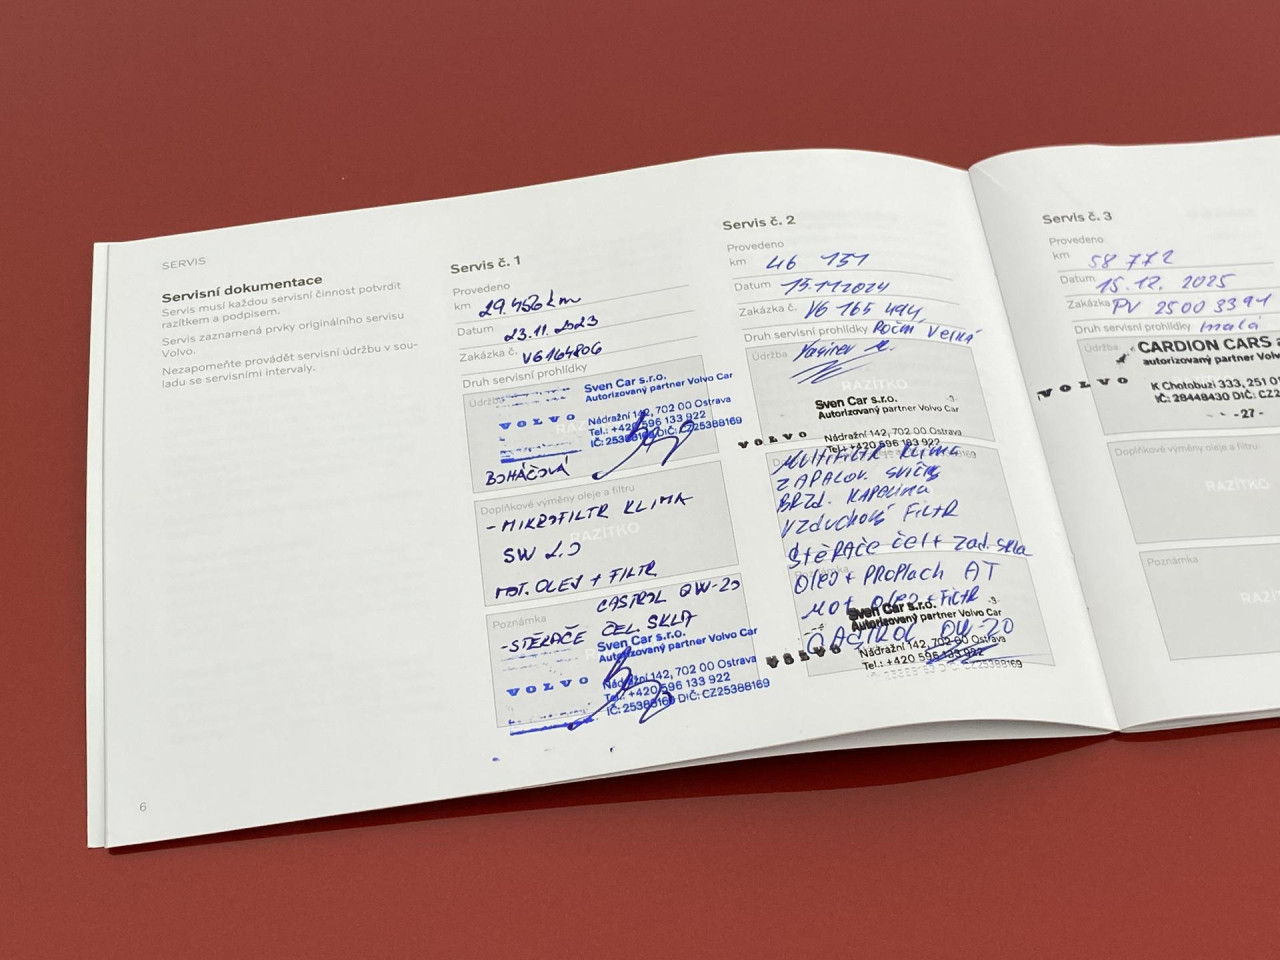 SERVIS
Servisní dokumentace
Servis musí každou servisní činnost potvrdit
razítkem a podpisem.
Servis zaznamená prvky originálního servisu
Volvo.
Nezapomeňte provádět servisní údržbu v sou-
ladu se servisními intervaly.
6
Servis č. 1
Provedeno
km 29.456 km
Datum 23.11.2023
Zakázka č. V6164806
Druh servisní prohlídky
Údržba
RAZÍTKO
Sven Car s.r.o.
Autorizovaný partner Volvo Car
VOLVO
Nádražní 142, 702 00 Ostrava
Tel.: +420 596 133 922
IČ: 25388169 DIČ: CZ25388169
BOHÁČOVÁ
Doplňkové výměny oleje a filtru
RAZÍTKO
- MIKROFILTR KLIMA
SW 2.0
MOT. OLEJ + FILTR
CASTROL 0W-20
Poznámka
- STĚRAČE ČEL. SKLA
Sven Car s.r.o.
Autorizovaný partner Volvo Car
VOLVO
Nádražní 142, 702 00 Ostrava
Tel.: +420 596 133 922
IČ: 25388169 DIČ: CZ25388169
Servis č. 2
Provedeno
km 46 151
Datum 15.11.2024
Zakázka č. V6 165 494
Druh servisní prohlídky Roční Velká
Údržba
RAZÍTKO
Sven Car s.r.o. -3-
Autorizovaný partner Volvo Car
VOLVO
Nádražní 142, 702 00 Ostrava
Tel.: +420 596 133 922
Multifiltr klima
ZAPALOV. SVÍČKY
BRZD. KAPALINA
VZDUCHOVÝ FILTR
Poznámka
STĚRAČE čel + zad. skla
Olej + PROPLACH AT
MOT olej + FILTR
CASTROL 0W-20
Sven Car s.r.o. -3-
Autorizovaný partner Volvo Car
VOLVO
Nádražní 142, 702 00 Ostrava
Tel.: +420 596 133 922
CZ25388169
Servis č. 3
Provedeno
km 58 772
Datum 15.12. 2025
Zakázka PV 2500 3391
Druh servisní prohlídky malá
Údržba
CARDION CARS
autorizovaný partner Volvo
VOLVO
K Chotobuzi 333, 251 0
IČ: 28448430 DIČ: CZ2
-27-
Doplňkové výměny oleje a filtru
RAZÍTKO
Poznámka